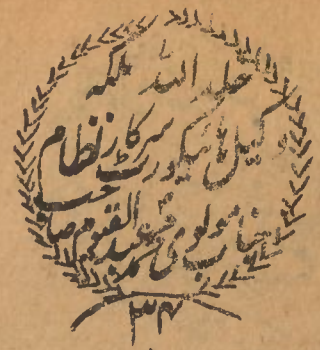 خلد اللہ ملکہ
وکیل ہائیکورٹ سرکار نظام
جناب مولوی محمد عبدالقیوم صاحب
۳۴